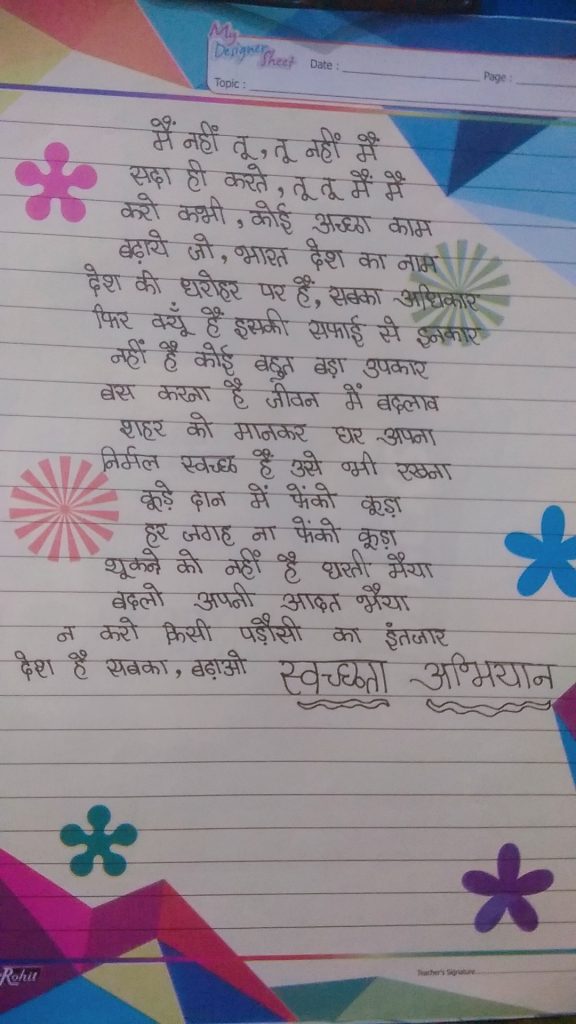 My
Designer
Sheet
Date :
Page :
Topic :
मैं नहीं तू, तू नहीं मैं
सदा ही करते, तू तू मैं मैं
करो कभी, कोई अच्छा काम
बढ़ाये जो, भारत देश का नाम
देश की धरोहर पर है, सबका अधिकार
फिर क्यूँ है इसकी सफाई से इनकार
नहीं है कोई बहुत बड़ा उपकार
बस करना है जीवन में बदलाव
शहर को मानकर घर अपना
निर्मल स्वच्छ है उसे भी रखना
कूड़े दान में फेंको कूड़ा
हर जगह ना फेंको कूड़ा
थूकने को नहीं है धरती मैया
बदलो अपनी आदत भैया
न करो किसी पड़ौसी का इंतजार
देश है सबका, बढ़ाओ स्वच्छता अभियान
Rohit
Teacher's Signature